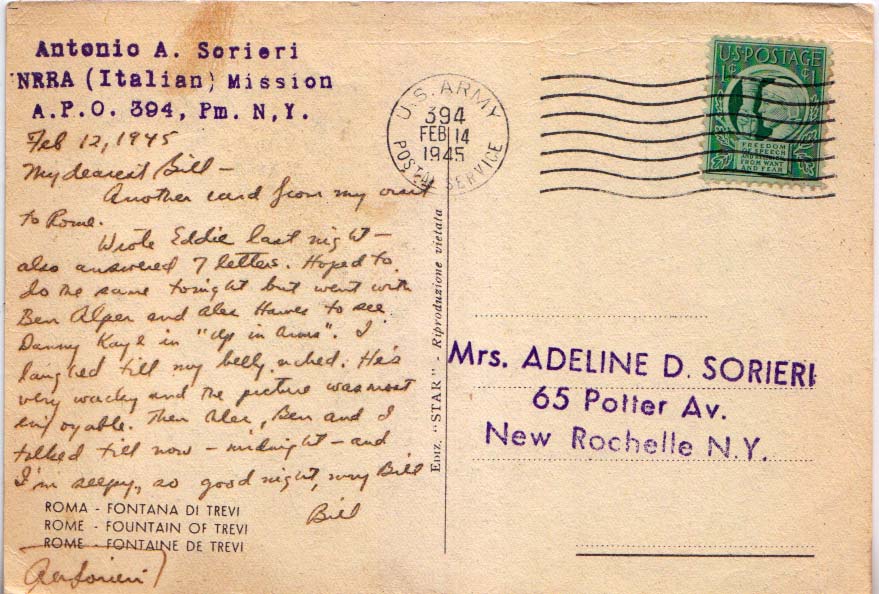 Antonio A. Sorieri
NRRA (Italian) Mission
A.P.O. 394, Pm. N,Y.
Feb 12, 1945
My dearest Bill -
Another card from my visit
to Rome.
Wrote Eddie last night -
also answered 7 letters. Hoped to
do the same tonight but went with
Ben Alper and Alex Hawes to see
Danny Kaye in "Up in Arms". I
laughed till my belly ached. He's
very wacky and the picture was most
enjoyable. Then Alex, Ben and I
talked till now - midnight - and
I'm sleepy, so good night, my Bill
Bill
ROMA - FONTANA DI TREVI
ROME - FOUNTAIN OF TREVI
ROME - FONTAINE DE TREVI
AASorieri
Ediz. "STAR" - Riproduzione vietata
U.S. ARMY
394
FEB 14
1945
POSTAL SERVICE
U.S. POSTAGE
1¢ ¢1
FREEDOM
OF SPEECH
AND RELIGION
FROM WANT
AND FEAR
Mrs. ADELINE D. SORIERI
65 Potter Av.
New Rochelle N.Y.